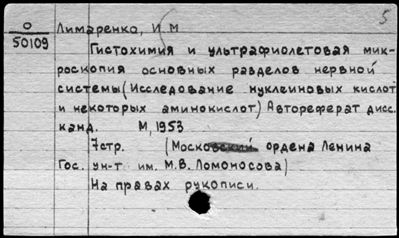 5
О
50109
Лимаренко, И М
Гистохимия и ультрафиолетовая мик-
роскопия основных разделов нервной
системы (Исследование нуклеиновых кислот
и некоторых аминокислот) Автореферат дисс.
канд. М, 1953
7стр. (Московский ордена Ленина
Гос. ун-т им. М.В. Ломоносова)
На правах рукописи.